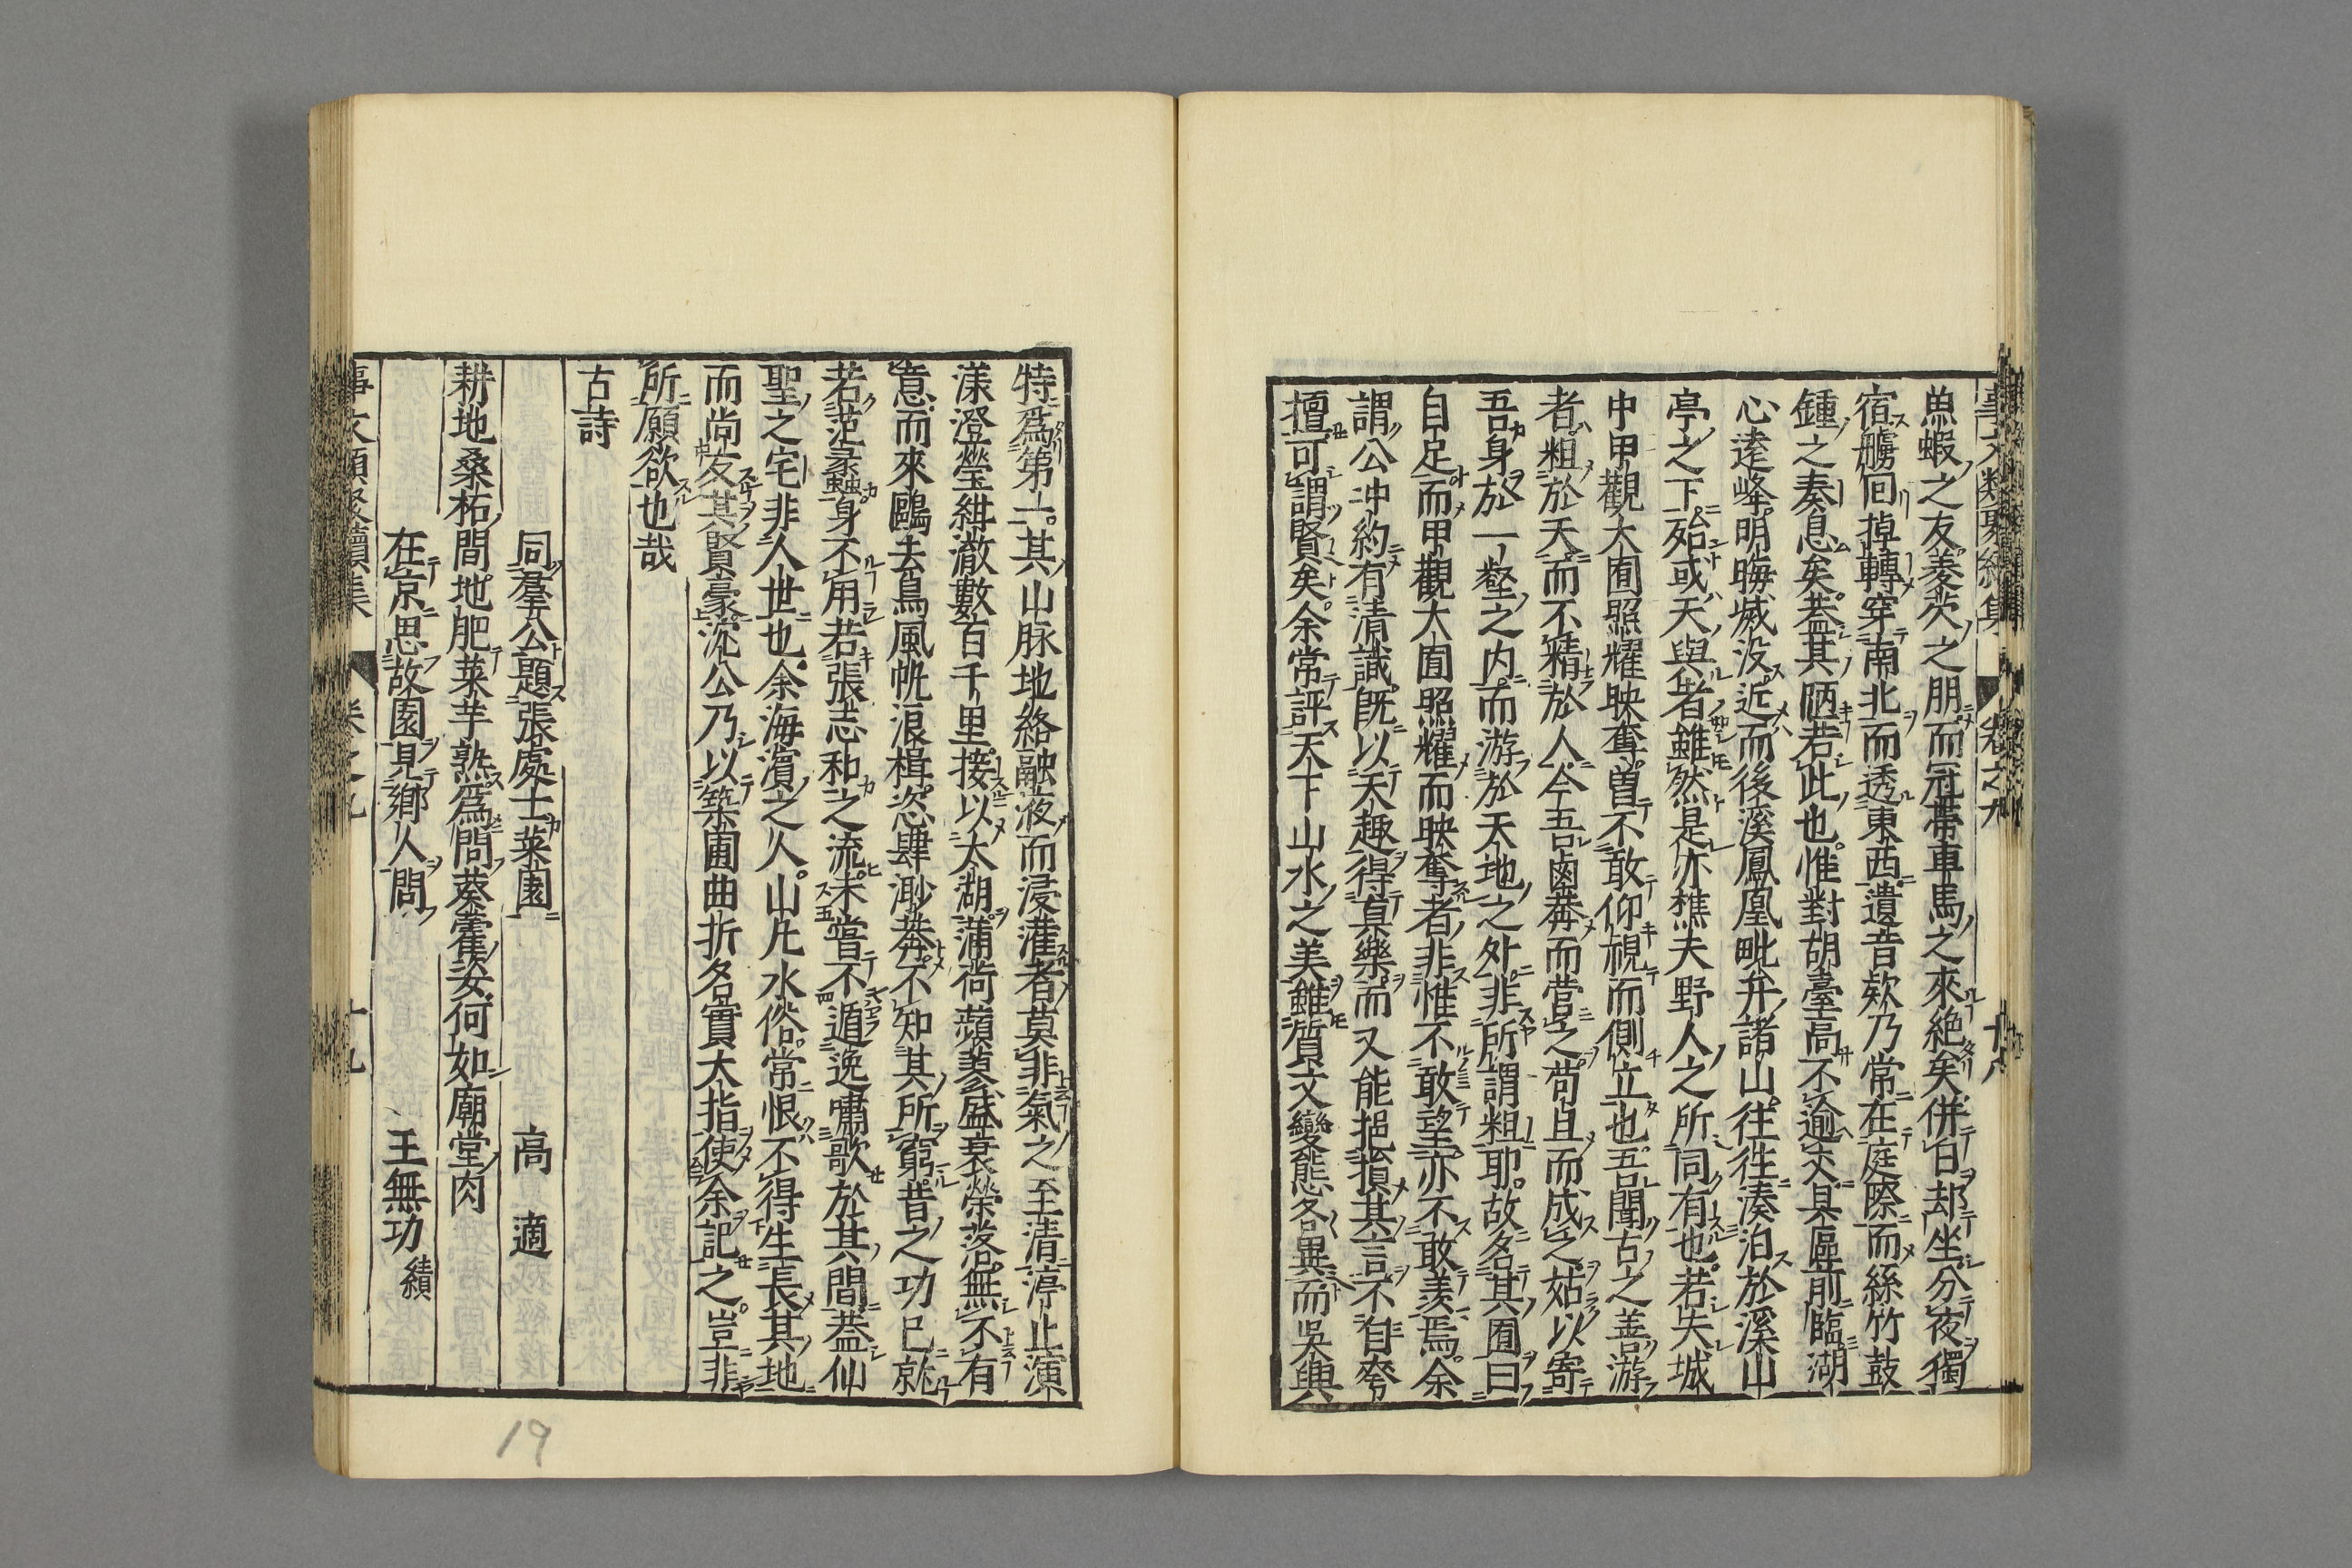 事文類聚續集 卷之九 十八
魚蝦之友菱茨之朋而冠帶車馬之來絶矣併白却坐分夜獨
宿艣回掉轉穿南北而透東西遺音欸乃常在庭際而絲竹鼓
鍾之奏息矣葢其陋若此也惟對胡臺高不逾丈具區前臨湖
心逺峰明晦滅没近而後溪鳳凰毗弁諸山往徃湊泊於溪山
亭之下殆或天與者雖然是亦樵夫野人之所同有也若夫城
中甲觀大囿照耀映奪曽不敢仰視而側立也吾聞古之善游
者粗於天而不精於人今吾鹵莽而営之苟且而成之姑以寄
吾身於一壑之内而游於天地之外非所謂粗耶故名其囿曰
自足而甲觀大囿照耀而映奪者非惟不敢望亦不敢羨焉余
謂公冲約有清識既以天趣得真樂而又能挹損其言不自夸
擅可謂賢矣余常評天下山水之美雖質文變態各異而吳興
特爲第一其山脉地絡融液而浸灌者莫非氣之至清渟止演
漾澄瑩紺澈數百千里接以太湖蒲荷蘋蓼盛衰榮落無不有
意而來鷗去鳥風帆浪楫恣肆渺莽不知其所窮昔之功已就
若范蠡身不用若張志和之流未嘗不遁逸嘯歌於其間葢仙
聖之宅非人世也余海濱之人山凡水俗常恨不得生長其地
而尚友其賢豪沈公乃以築圃曲折名實大指使余記之豈非
所願欲也哉
古詩
同羣公題張處士菜園 高適
耕地桑柘間地肥菜芋熟爲問葵藿姿何如廟堂肉
在京思故園見鄉人問 王無功績
事文類聚續集 卷之九 十九
19